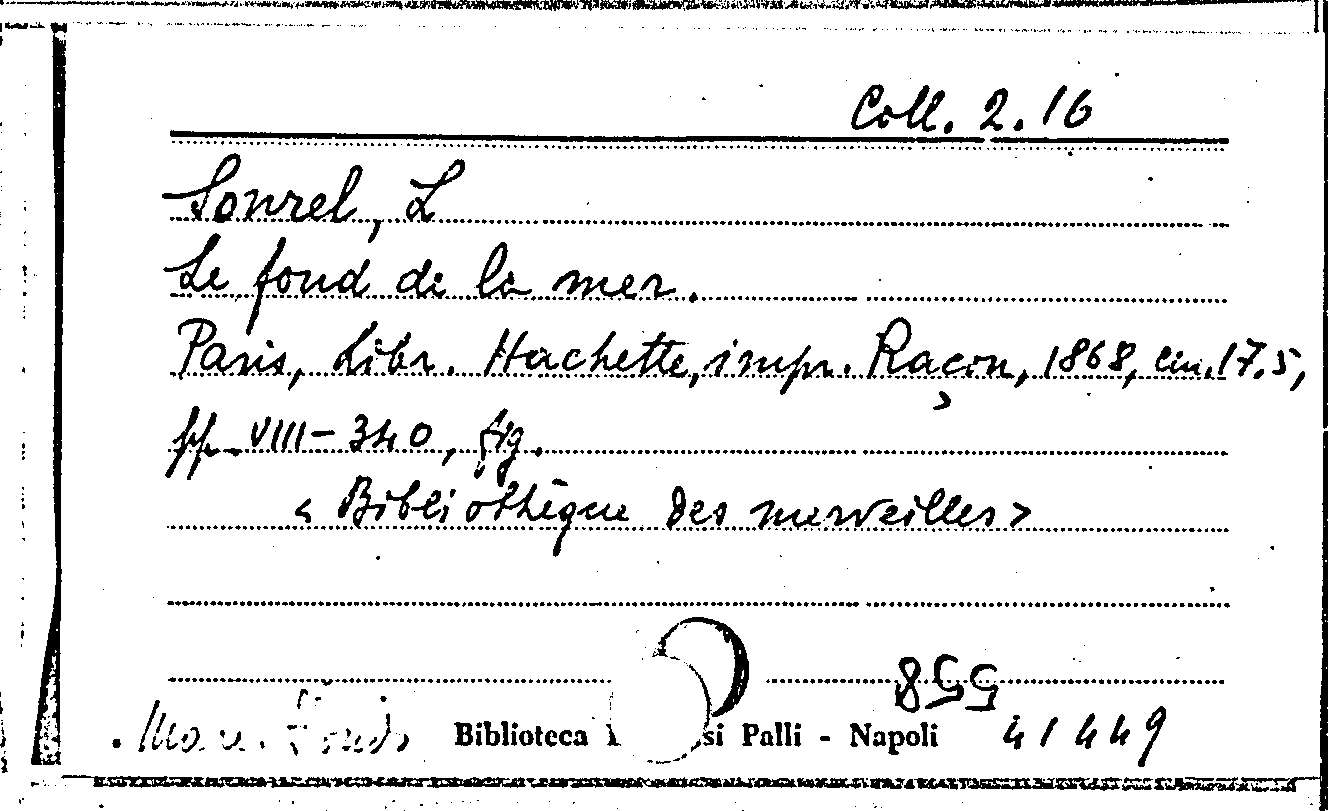 Coll. 2.16
Sonrel, L
Le fond de la mer.
Paris, Libr. Hachette, impr. Raçon, 1868, cm. 17.5,
pp. VIII-340, fig.
« Bibliothèque des merveilles »
558
41449
Mare. Fondo Biblioteca si Palli - Napoli